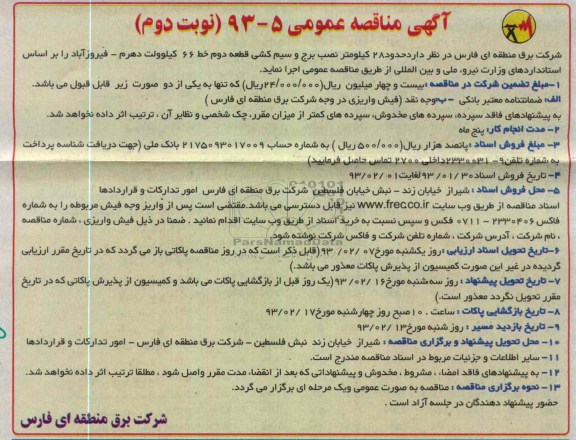 آگهی مناقصه عمومی ۵-۹۳ (نوبت دوم)
شرکت برق منطقه ای فارس در نظر داردحدود۲۸ کیلومتر نصب برج و سیم کشی قطعه دوم خط ۶۶ کیلوولت دهرم - فیروزآباد را بر اساس
استانداردهای وزارت نیرو، ملی و بین المللی از طریق مناقصه عمومی اجرا نماید.
۱-مبلغ تضمین شرکت در مناقصه :بیست و چهار میلیون ریال(۲۴/۰۰۰/۰۰۰ریال) که تنها به یکی از دو صورت زیر قابل قبول می باشد.
الف: ضمانتنامه معتبر بانکی -ب:وجه نقد (فیش واریزی در وجه شرکت برق منطقه ای فارس )
به پیشنهادهای فاقد سپرده، سپرده های مخدوش، سپرده های کمتر از میزان مقرر، چک شخصی و نظایر آن ، ترتیب اثر داده نخواهد شد.
۲- مدت انجام کار: پنج ماه
۳- مبلغ فروش اسناد :پانصد هزار ریال(۵۰۰/۰۰۰ ریال ) به شماره حساب ۲۱۷۵۰۹۳۰۱۷۰۰۹ بانک ملی (جهت دریافت شناسه پرداخت
به شماره تلفن۹-۲۳۳۰۰۳۱داخلی ۲۷۰۰ تماس حاصل فرمایید)
۴- تاریخ فروش اسناد:۹۳/۰۱/۳۰لغایت۹۳/۰۲/۰۱
۵- محل فروش اسناد : شیراز خیابان زند - نبش خیابان فلسطین شرکت برق منطقه ای فارس امور تدارکات و قراردادها
اسناد مناقصه از طریق وب سایت www.frecco.ir نیز قابل دسترسی می باشد.مقتضی است پس از واریز وجه فیش مربوطه را به شماره
فاکس ۲۳۳۰۴۰۶ - ۰۷۱۱ فکس و سپس نسبت به خرید اسناد از طریق وب سایت اقدام نمائید . ضمنا در ذیل فیش واریزی ، شماره مناقصه
، نام شرکت ، آدرس شرکت ، شماره تلفن شرکت و فاکس شرکت نوشته شود.
۶-تاریخ تحویل اسناد ارزیابی :روز یکشنبه مورخ۹۳/۰۲/۰۷(قابل ذکر است که در روز مناقصه پاکاتی باز می گردد که در تاریخ مقرر ارزیابی
گردیده در غیر این صورت کمیسیون از پذیرش پاکات معذور می باشد.)
۷-تاریخ تحویل پیشنهاد : روز سه شنبه مورخ۹۳/۰۲/۱۶(یک روز قبل از بازگشایی پاکات می باشد و کمیسیون از پذیرش پاکاتی که در تاریخ
مقرر تحویل نگردد معذور است.)
۸- تاریخ بازگشایی پاکات : ساعت ۱۰صبح روز چهارشنبه مورخ۹۳/۰۲/۱۷
۹- تاریخ بازدید مسیر : روز شنبه مورخ۹۳/۰۲/۱۳
۱۰- محل تحویل پیشنهاد و برگزاری مناقصه : شیراز خیابان زند نبش فلسطین - شرکت برق منطقه ای فارس - امور تدارکات و قراردادها
۱۱- سایر اطلاعات و جزئیات مربوط در اسناد مناقصه مندرج است.
۱۲- به پیشنهادهای فاقد امضاء ، مشروط ، مخدوش و پیشنهاداتی که بعد از انقضاء مدت مقرر واصل شود ، مطلقا ترتیب اثر داده نخواهد شد.
۱۳- نحوه برگزاری مناقصه : مناقصه به صورت عمومی ویک مرحله ای برگزار می گردد.
حضور پیشنهاد دهندگان در جلسه آزاد است .
شرکت برق منطقه ای فارس